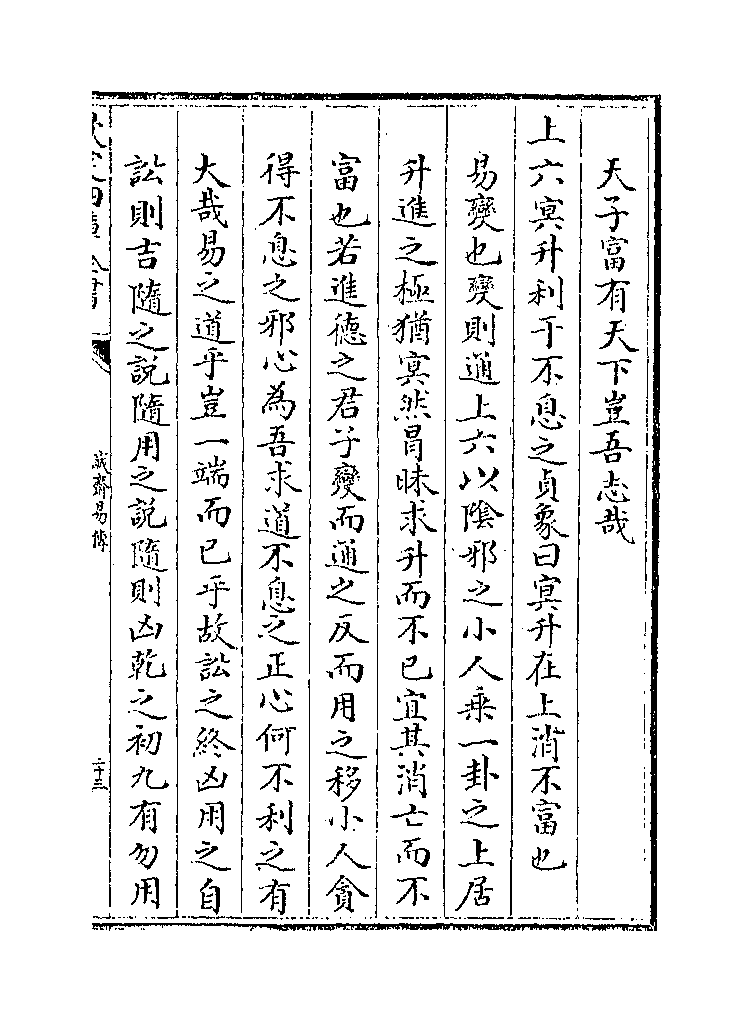 天子富有天下豈吾志哉
上六冥升利于不息之貞象曰冥升在上消不富也
易變也變則通上六以陰邪之小人乗一卦之上居
升進之極猶冥然冒昧求升而不已宜其消亡而不
富也若進德之君子變而通之反而用之移小人貪
得不息之邪心為吾求道不息之正心何不利之有
大哉易之道乎豈一端而已乎故訟之終凶用之自
訟則吉隨之說隨用之說隨則凶乾之初九有勿用
誠齋易傳
二十三